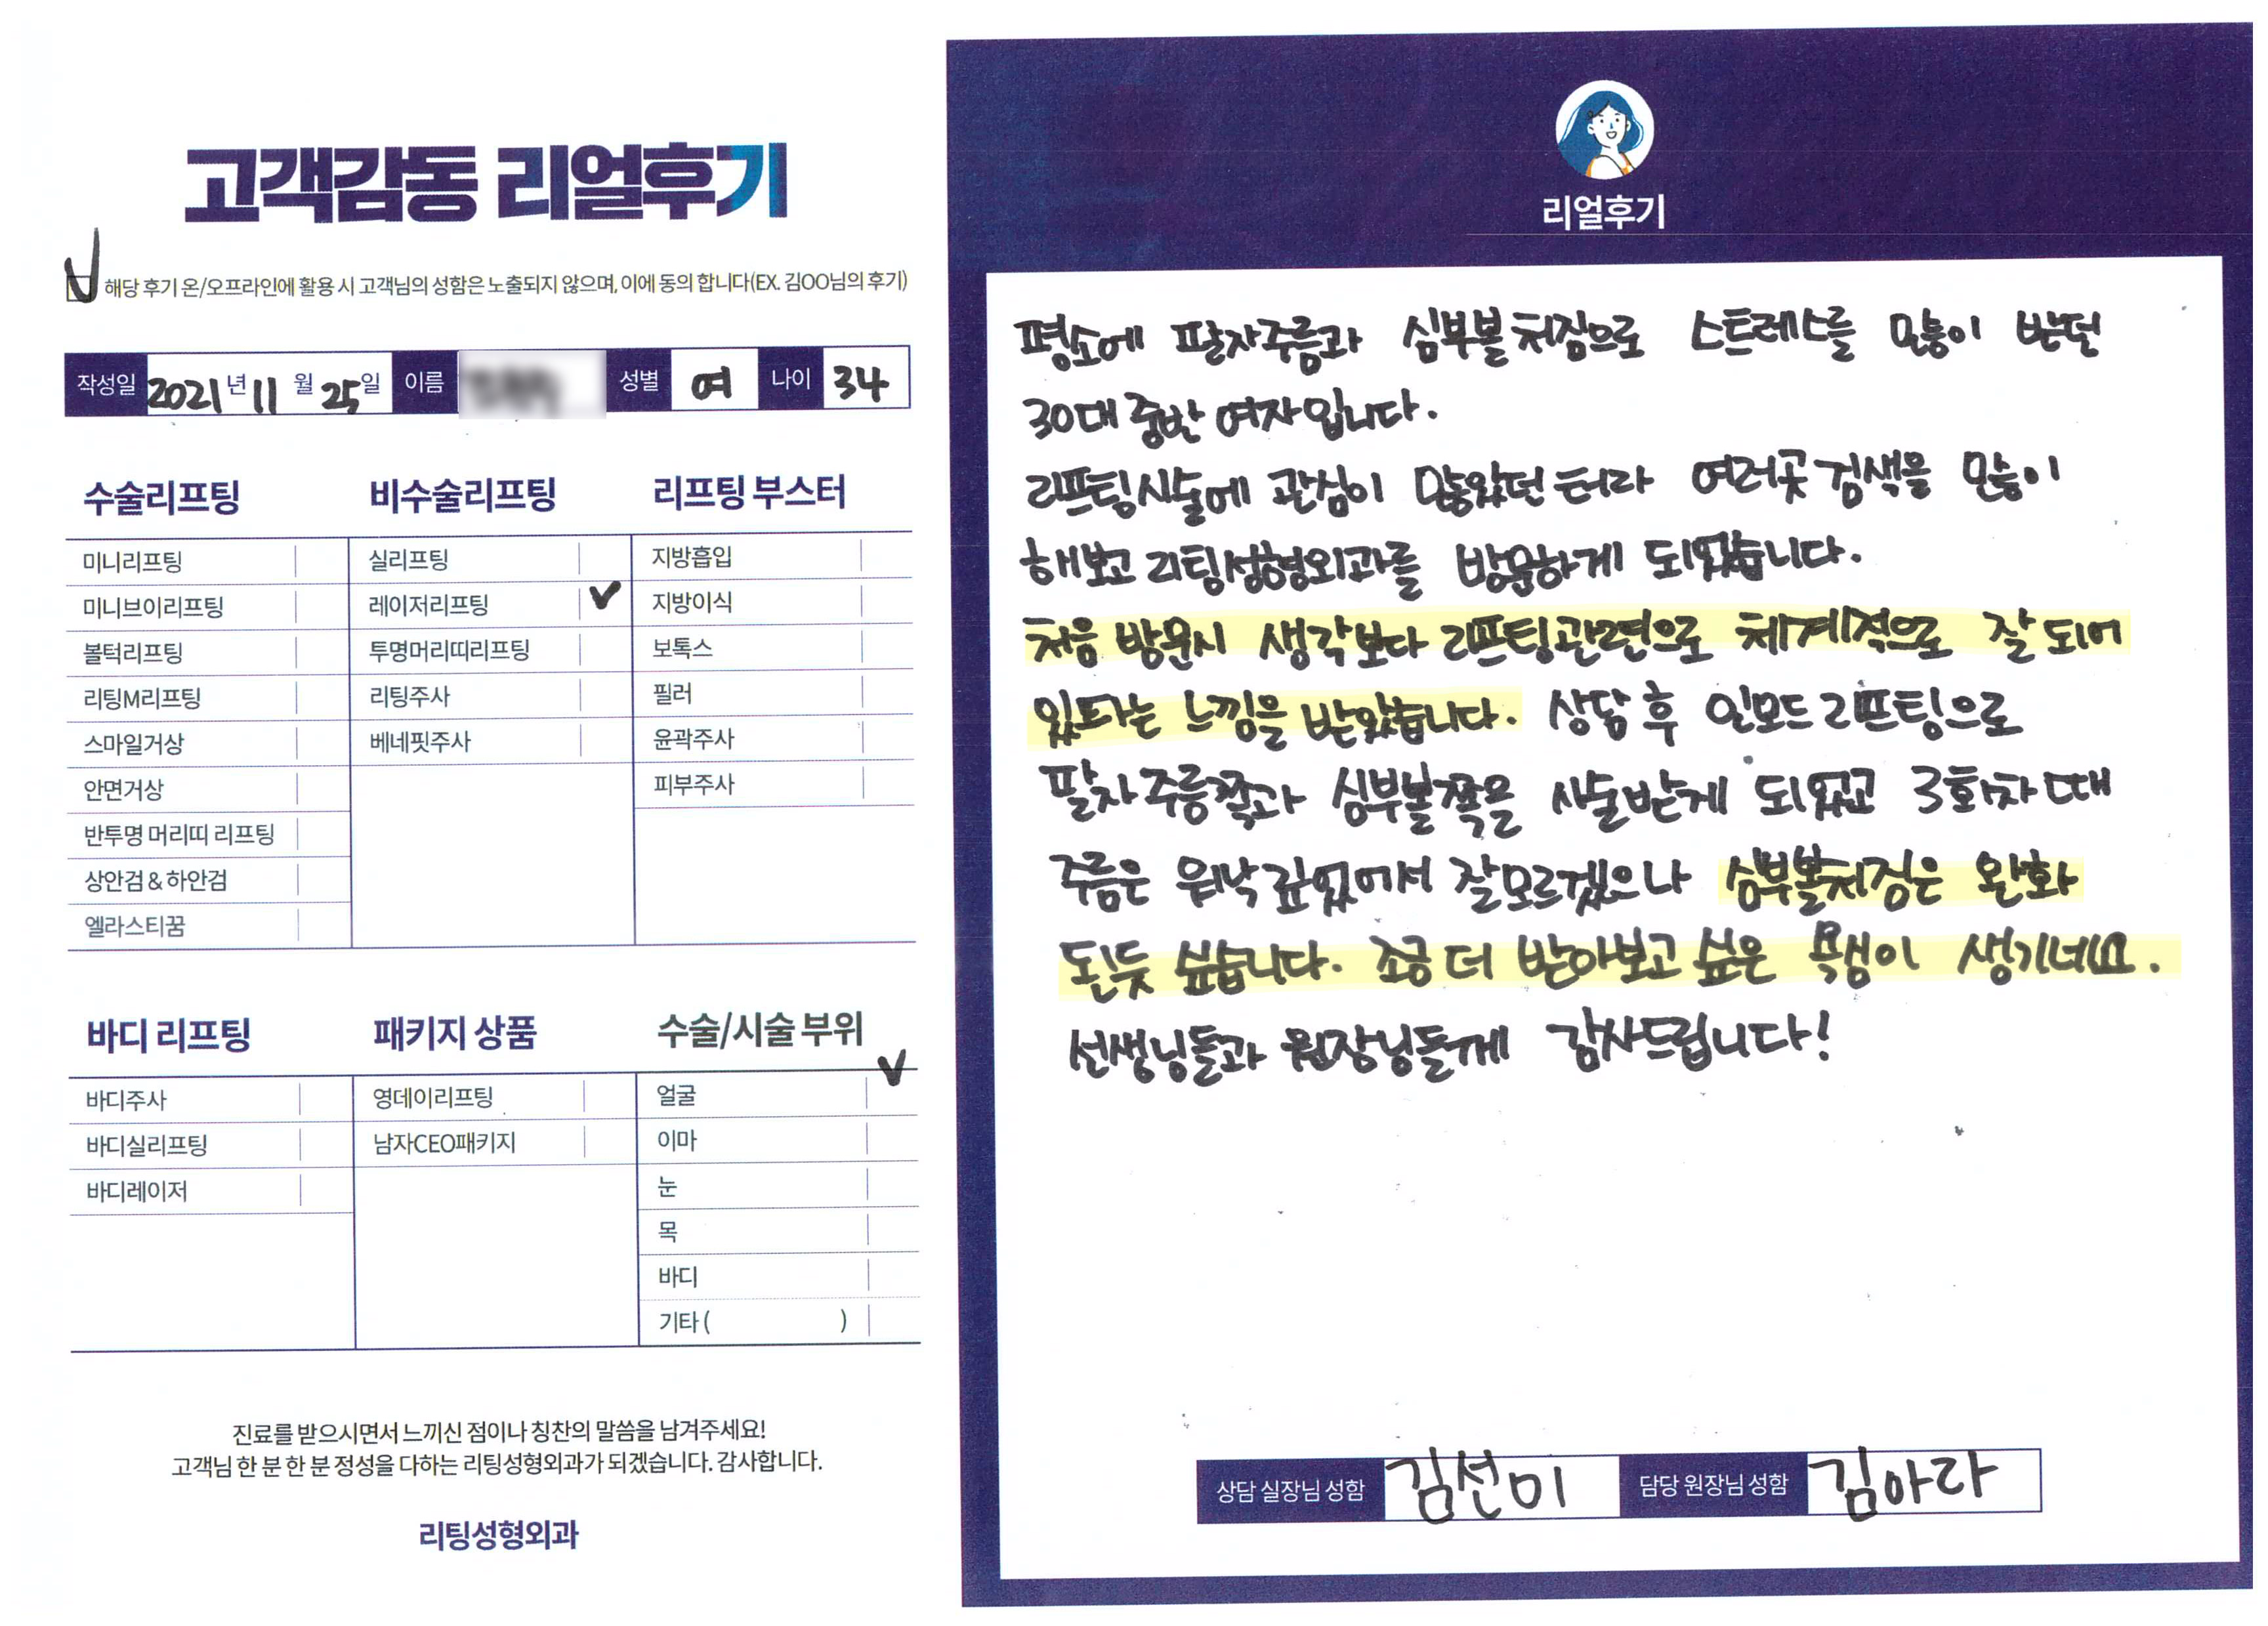 고객감동 리얼후기
해당 후기 온/오프라인에 활용 시 고객님의 성함은 노출되지 않으며, 이에 동의 합니다(EX. 김OO님의 후기)
작성일 2021년 11월 25일 이름 성별 여 나이 34
수술리프팅
미니리프팅
미니브이리프팅
볼턱리프팅
리팅M리프팅
스마일거상
안면거상
반투명 머리띠 리프팅
상안검 & 하안검
엘라스티꿈
비수술리프팅
실리프팅
레이저리프팅
투명머리띠리프팅
리팅주사
베네핏주사
리프팅 부스터
지방흡입
지방이식
보톡스
필러
윤곽주사
피부주사
바디 리프팅
바디주사
바디실리프팅
바디레이저
패키지 상품
영데이리프팅
남자CEO패키지
수술/시술 부위
얼굴
이마
눈
목
바디
기타 ( )
진료를 받으시면서 느끼신 점이나 칭찬의 말씀을 남겨주세요!
고객님 한 분 한 분 정성을 다하는 리팅성형외과가 되겠습니다. 감사합니다.
리팅성형외과
리얼후기
평소에 팔자주름과 심부볼처짐으로 스트레스를 많이 받던
30대 중반 여자입니다.
리프팅시술에 관심이 많았던 터라 여러곳 검색을 많이
해보고 리팅성형외과를 방문하게 되었습니다.
처음 방문시 생각보다 리프팅관련으로 체계적으로 잘 되어
있다는 느낌을 받았습니다. 상담 후 인모드 리프팅으로
팔자주름쪽과 심부볼쪽을 시술받게 되었고 3회차 때
주름은 워낙 깊었어서 잘모르겠으나 심부볼처짐은 완화
된듯 싶습니다. 조금 더 받아보고 싶은 욕심이 생기네요.
선생님들과 원장님들께 감사드립니다!
상담 실장님 성함 김선미 담당 원장님 성함 김아라